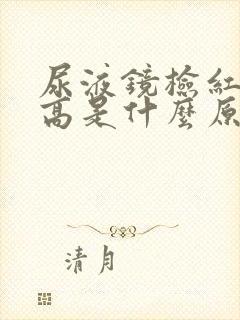 尿液镜检红
高是什麼原
清月